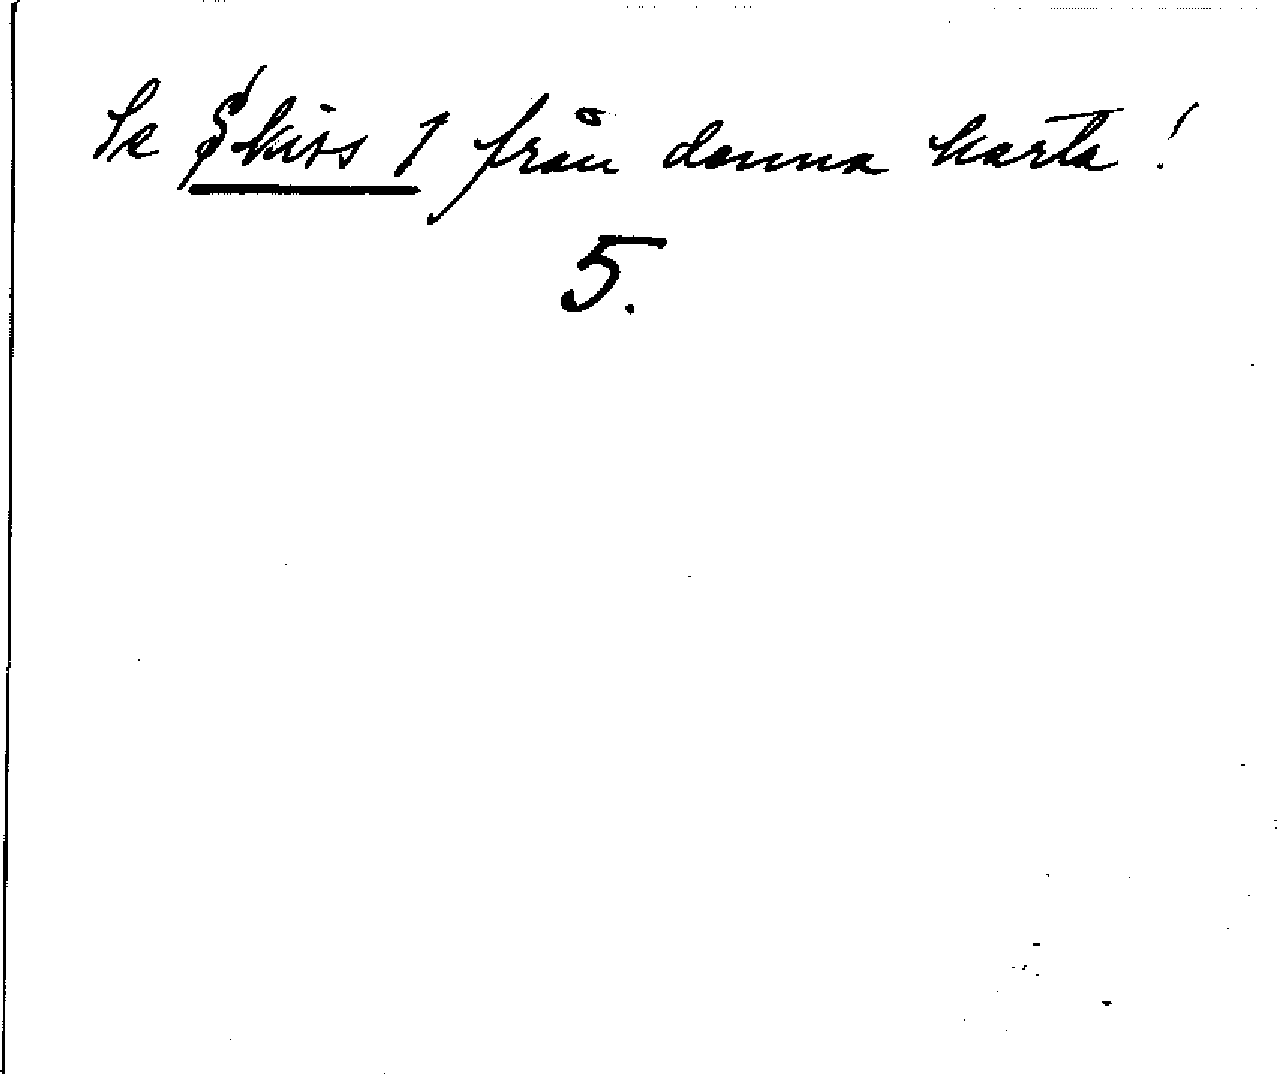 Se Skiss 1 från denna karta!
5.